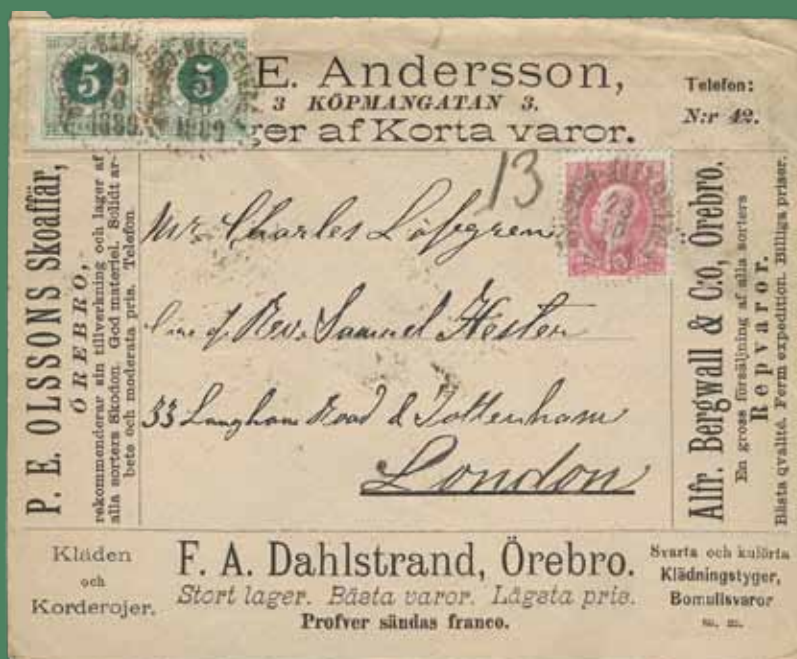 5 5
1889 1889
E. Andersson,
3 KÖPMANGATAN 3.
ger af Korta varor.
Telefon:
N:r 42.
P. E. OLSSONS Skoaffär,
ÖREBRO,
rekommenderar sin tillverkning och lager af
alla sorters Skodon. God materiel. Solidt ar-
bete och moderata pris. Telefon.
13
Mr. Charles Löfgren
Care of. Rev. Samuel
33 Langham Road & Tottenham
London
Alfr. Bergwall & C:o, Örebro.
En gross försäljning af alla sorters
Repvaror.
Bästa qvalité. Ferm expedition. Billiga priser.
Kläden
och
Korderojer.
F. A. Dahlstrand, Örebro.
Stort lager. Bästa varor. Lägsta pris.
Profver sändas franco.
Svarta och kulörta
Klädningstyger,
Bomullsvaror
m. m.